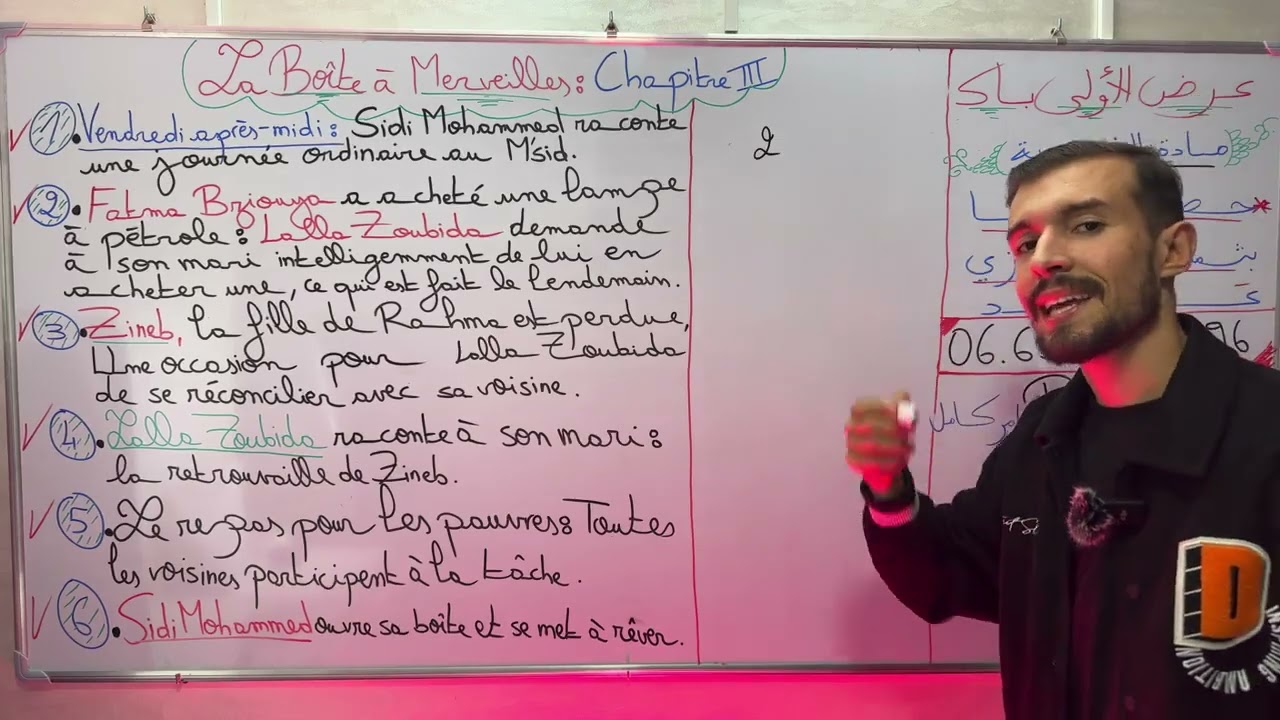 La Boîte à Merveilles: Chapitre III
1. Vendredi après-midi: Sidi Mohammed raconte
une journée ordinaire au M'sid.
2. Fatma Bziouya a acheté une lampe
à pétrole: Lalla Zoubida demande
à son mari intelligemment de lui en
acheter une, ce qui est fait le lendemain.
3. Zineb, la fille de Rahma est perdue,
Une occasion pour Lalla Zoubida
de se réconcilier avec sa voisine.
4. Lalla Zoubida raconte à son mari:
la retrouvaille de Zineb.
5. Le repas pour les pauvres: Toutes
les voisines participent à la tâche.
6. Sidi Mohammed ouvre sa boîte et se met à rêver.
2
عرض الأولى باك
مادة
06.6
96
كامل
D
AMBITION